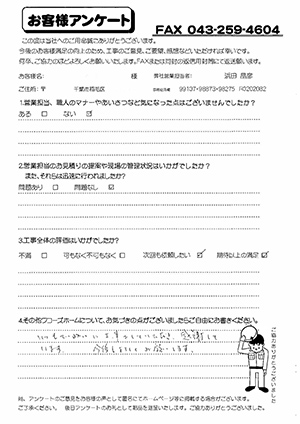 お客様アンケート
FAX 043-259-4604
この度は当社へのご用命誠にありがとうございます。
今後のお客様満足の向上のため、工事のご意見、ご要望、感想などいただければ幸いです。
何卒、ご協力のほどよろしくお願いいたします。FAXまたは同封の返信用封筒にて返送願います。
お客様名: 様 弊社営業担当者: 浜田 昌彦
ご住所: 〒 千葉市稲毛区 99137-98873-98275 R0202082
1.営業担当、職人のマナーやあいさつなど気になった点はございませんでしたか?
ある □ ない ☑
2.営業担当のお見積りの提案や現場の管理状況はいかがでしたか?
また、それらは迅速に行われましたか?
問題あり □ 問題なし ☑
3.工事全体の評価はいかがでしたか?
不満 □ 可もなく不可もなく □ 次回も依頼したい ☑ 期待以上の満足 ☑
4.その他ウフーズホームについて、お気づきの点がございましたらご自由にお書きください。
います。 今後もよろしくお願いします。
尚、アンケートのご意見をお客様の声として匿名にてホームページ等に掲載する場合がございます。
ご了承ください。 後日アンケートのお礼として粗品を進呈いたします。ご協力ありがとうございました。